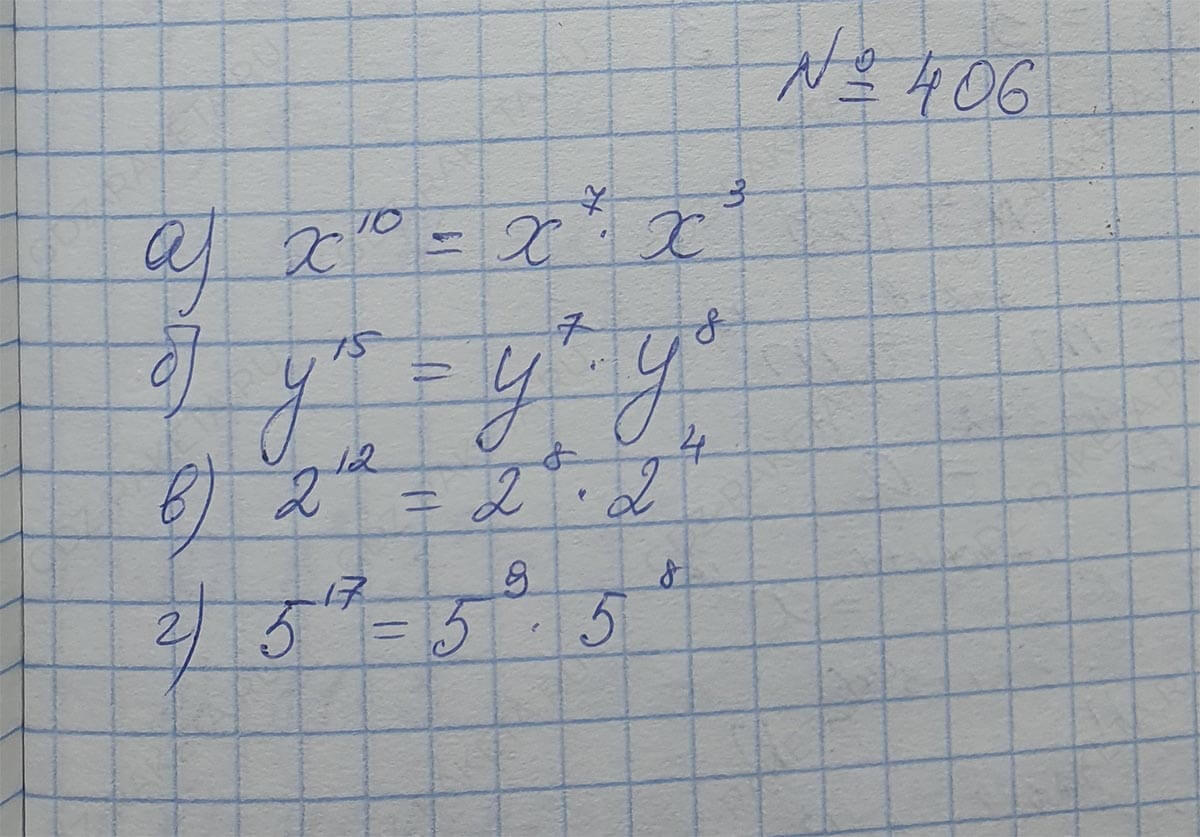 № 406
а) x¹⁰ = x⁷ · x³
б) y¹⁵ = y⁷ · y⁸
в) 2¹² = 2⁸ · 2⁴
г) 5¹⁷ = 5⁹ · 5⁸